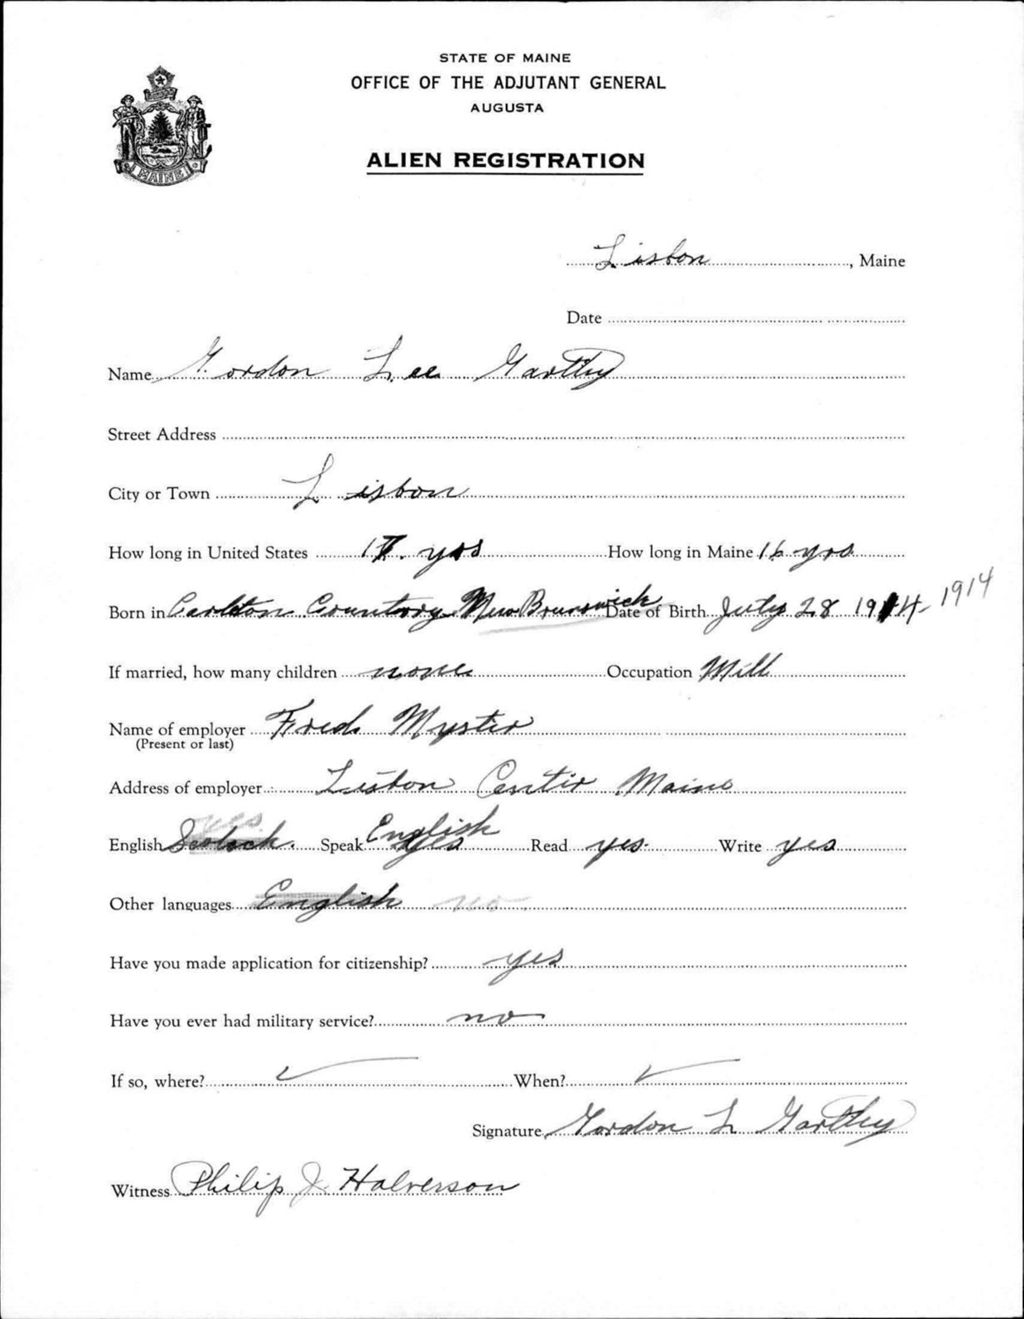 STATE OF MAINE
OFFICE OF THE ADJUTANT GENERAL
AUGUSTA
MAINE
ALIEN REGISTRATION
Lisbon, Maine
Date
Name Gordon Lee Gartley
Street Address
City or Town Lisbon
How long in United States 17 yrs How long in Maine 16 yrs
Born in Carlton Countory New Brunswick Date of Birth July 28 1914 1914
If married, how many children none Occupation Mill
Name of employer Fred Myster
(Present or last)
Address of employer Lisbon Center Maine
yes English
English Scotch. Speak yes Read yes. Write yes
Other languages English no
Have you made application for citizenship? yes
Have you ever had military service? no
If so, where? ✓ When? ✓
Signature Gordon L Gartley
Witness Philip J. Halverson